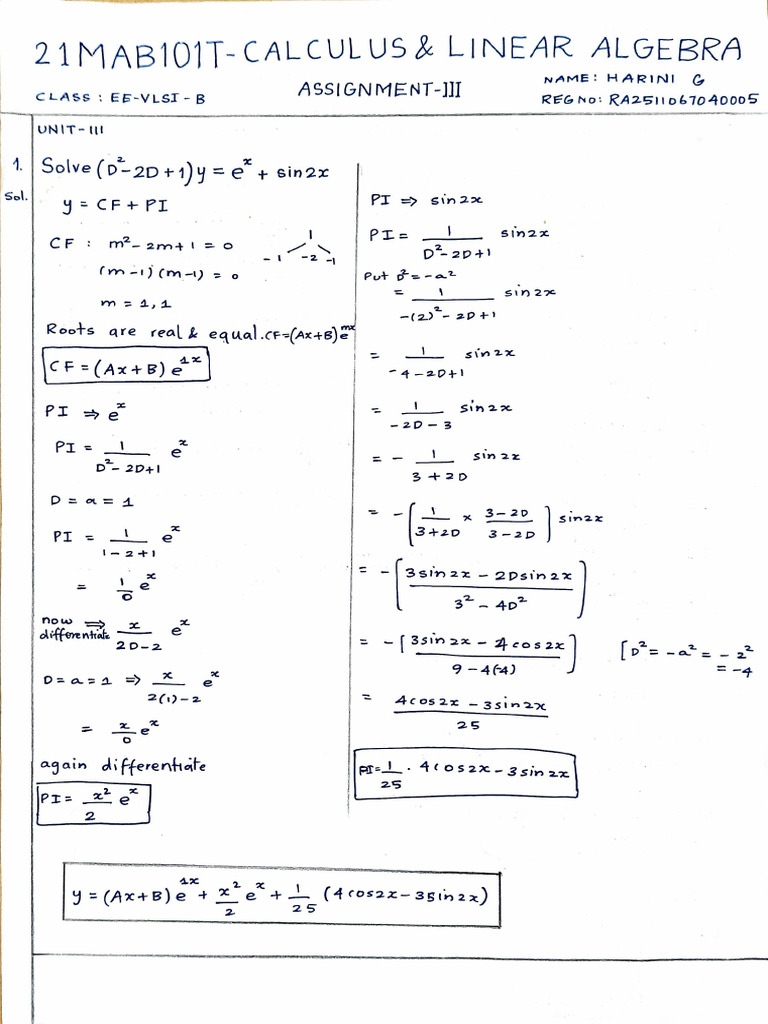 21MAB101T-CALCULUS & LINEAR ALGEBRA
CLASS : EE-VLSI-B
ASSIGNMENT-III
NAME: HARINI G
REG NO: RA2511067040005
UNIT-III
1. Solve (D²-2D+1)y = eˣ + sin2x
Sol. y = CF + PI
CF : m²-2m+1=0
1
-1 -2 -1
(m-1)(m-1)=0
m = 1,1
Roots are real & equal. CF=(Ax+B)eᵐˣ
CF = (Ax+B) e¹ˣ
PI ⇒ eˣ
PI = 1/(D²-2D+1) eˣ
D = a = 1
PI = 1/(1-2+1) eˣ
= 1/0 eˣ
now differentiate ⇒ x/(2D-2) eˣ
D=a=1 ⇒ x/(2(1)-2) eˣ
= x/0 eˣ
again differentiate
PI = x²/2 eˣ
PI ⇒ sin2x
PI = 1/(D²-2D+1) sin2x
Put D²=-a²
= 1/(-(2)²-2D+1) sin2x
= 1/(-4-2D+1) sin2x
= 1/(-2D-3) sin2x
= - 1/(3+2D) sin2x
= -[1/(3+2D) × (3-2D)/(3-2D)] sin2x
= -[(3sin2x - 2Dsin2x)/(3²-4D²)]
= -[(3sin2x - 4cos2x)/(9-4(-4))] [D²=-a²=-2²
=-4
= (4cos2x - 3sin2x)/25
PI = 1/25 · 4cos2x - 3sin2x
y = (Ax+B) e¹ˣ + x²/2 eˣ + 1/25 (4cos2x - 3sin2x)